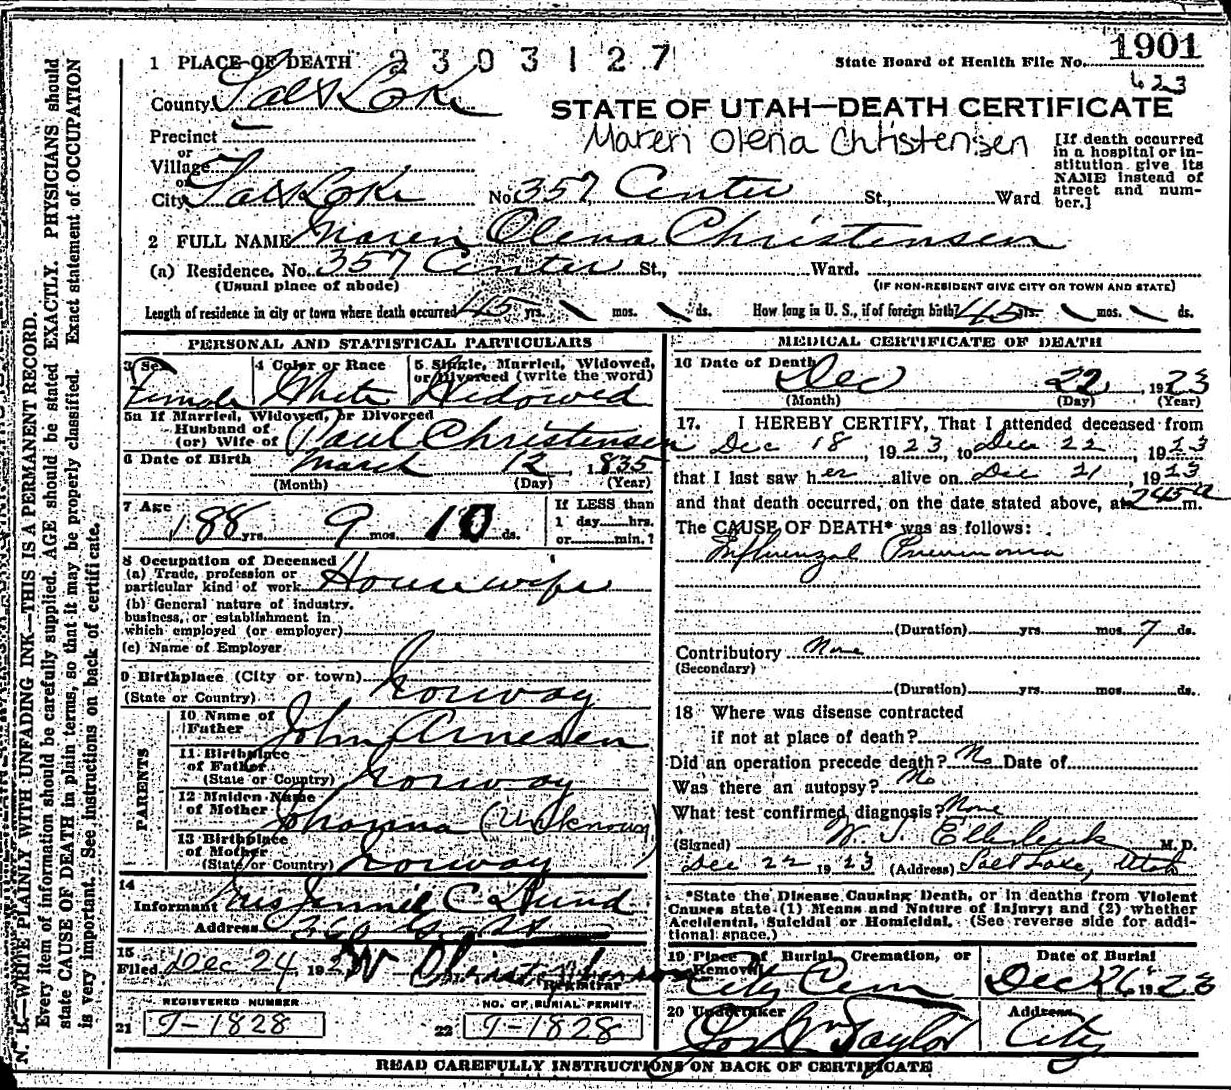 N. B.—WRITE PLAINLY WITH UNFADING INK—THIS IS A PERMANENT RECORD.
Every item of information should be carefully supplied. AGE should be stated EXACTLY. PHYSICIANS should
state CAUSE OF DEATH in plain terms, so that it may be properly classified. Exact statement of OCCUPATION
is very important. See instructions on back of certificate.
1 PLACE OF DEATH 2303127 State Board of Health File No. 1901
623
County Salt Lake
STATE OF UTAH—DEATH CERTIFICATE
Maren Olena Christensen
Precinct
or
Village
or
City Salt Lake No. 357 Center St., Ward
[If death occurred
in a hospital or in-
stitution give its
NAME instead of
street and num-
ber.]
2 FULL NAME Maren Olena Christensen
(a) Residence. No. 357 Center St., Ward.
(Usual place of abode) (IF NON-RESIDENT GIVE CITY OR TOWN AND STATE)
Length of residence in city or town where death occurred 45 yrs. mos. ds. How long in U. S., if of foreign birth? 45 yrs. mos. ds.
PERSONAL AND STATISTICAL PARTICULARS
3 Sex 4 Color or Race 5 Single, Married, Widowed,
or Divorced (write the word)
Female White Widowed
5a If Married, Widowed, or Divorced
Husband of
(or) Wife of Paul Christensen
6 Date of Birth March 12, 1835
(Month) (Day) (Year)
7 Age 88 yrs. 9 mos. 10 ds.
If LESS than
1 day hrs.
or min.?
8 Occupation of Deceased
(a) Trade, profession or
particular kind of work Housewife
(b) General nature of industry,
business, or establishment in
which employed (or employer)
(c) Name of Employer
9 Birthplace (City or town)
(State or Country) Norway
PARENTS
10 Name of
Father John Arnesen
11 Birthplace
of Father
(State or Country) Norway
12 Maiden Name
of Mother Johanna (Unknown)
13 Birthplace
of Mother
(State or Country) Norway
14
Informant Mrs Jennie C Lund
Address
15
Filed Dec 24, 192 W Christopherson
Registrar
REGISTERED NUMBER NO. OF BURIAL PERMIT
21 T-1828 22 T-1828
MEDICAL CERTIFICATE OF DEATH
16 Date of Death
Dec 22, 1923
(Month) (Day) (Year)
17. I HEREBY CERTIFY, That I attended deceased from
Dec 18, 1923, to Dec 22, 1923
that I last saw her alive on Dec 21, 1923
and that death occurred, on the date stated above, at 245 a m.
The CAUSE OF DEATH* was as follows:
Influenzal Pneumonia
(Duration) yrs. mos. 7 ds.
Contributory None
(Secondary)
(Duration) yrs. mos. ds.
18 Where was disease contracted
if not at place of death?
Did an operation precede death? No Date of
Was there an autopsy? No
What test confirmed diagnosis? None
(Signed) W. J. M.D.
Dec 22 1923 (Address) Salt Lake, Utah
*State the Disease Causing Death, or in deaths from Violent
Causes state (1) Means and Nature of Injury; and (2) whether
Accidental, Suicidal or Homicidal. (See reverse side for addi-
tional space.)
19 Place of Burial, Cremation, or
Removal Date of Burial
City Cem Dec 26 1923
20 Undertaker Address
Jos Wm Taylor City
READ CAREFULLY INSTRUCTIONS ON BACK OF CERTIFICATE